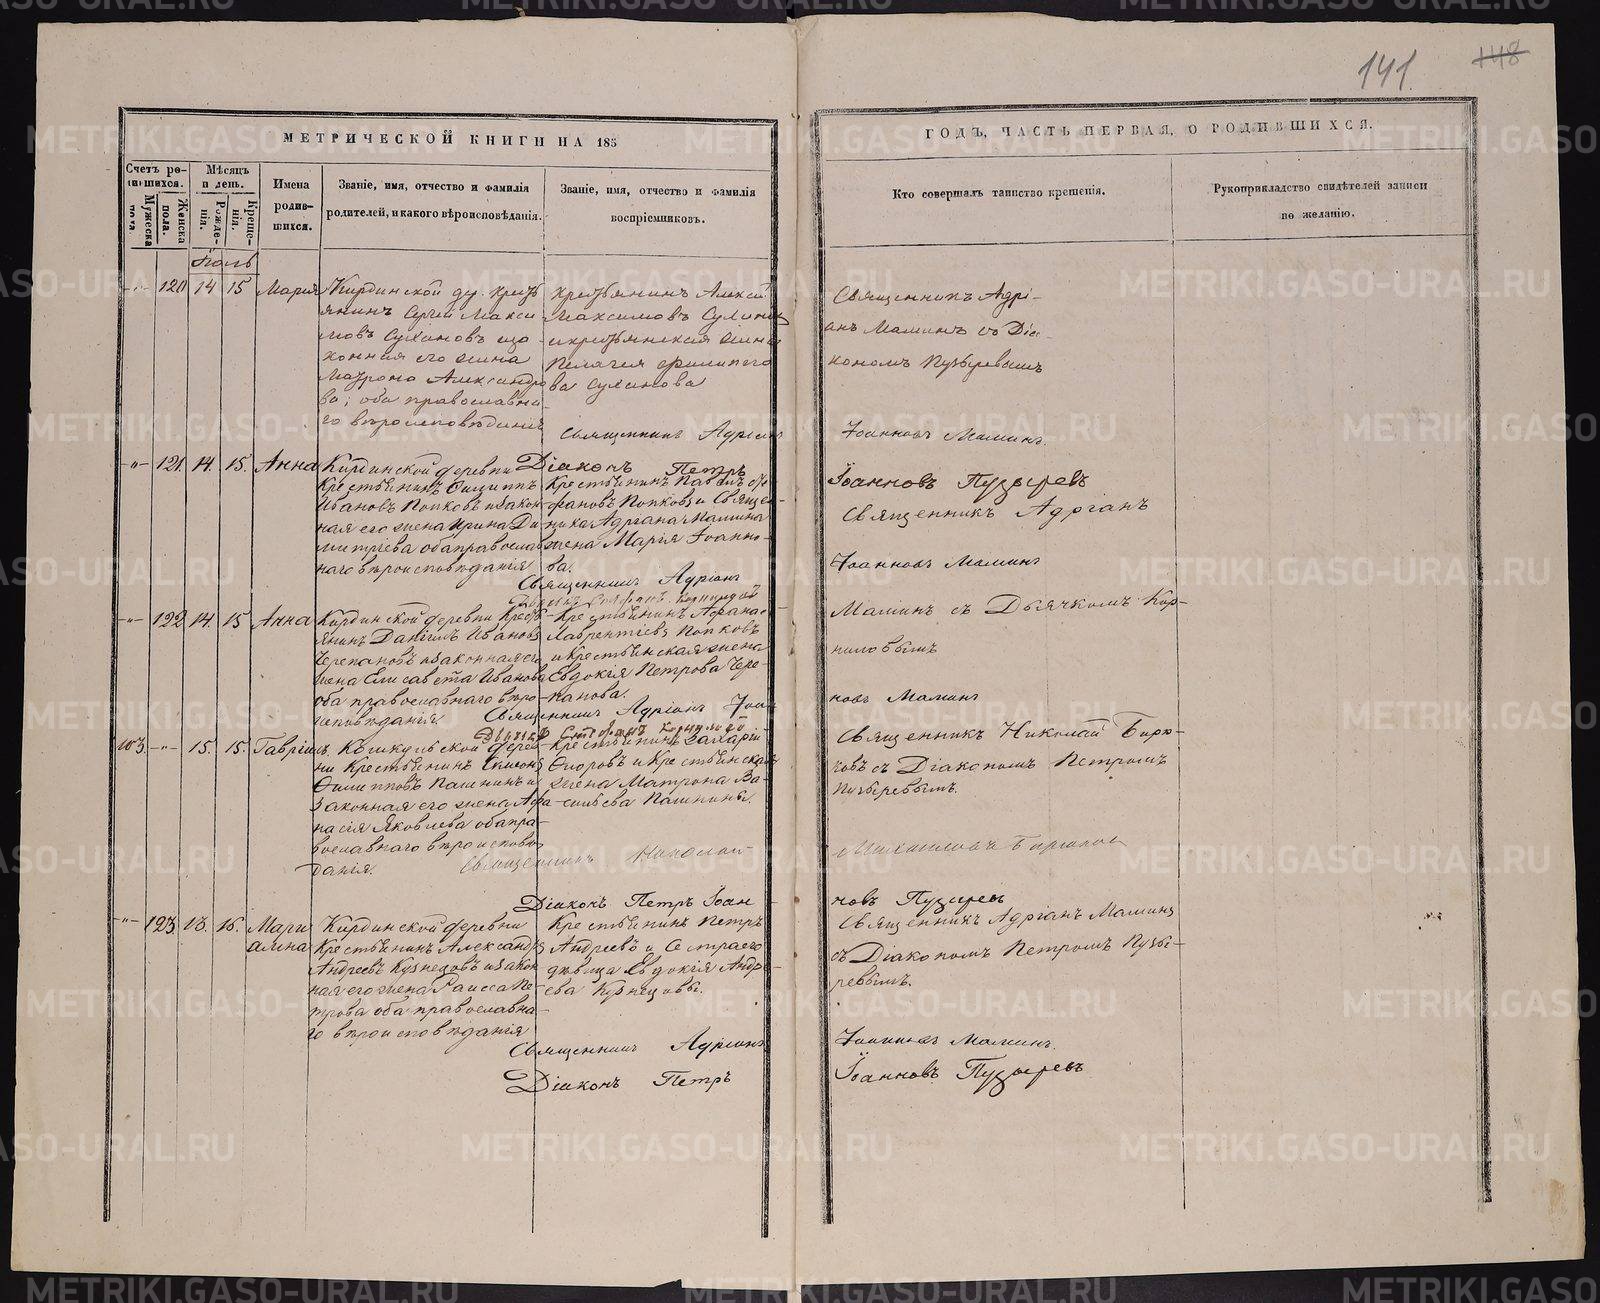 141
148
МЕТРИЧЕСКОЙ КНИГИ НА 185
ГОДЪ, ЧАСТЬ ПЕРВАЯ, О РОДИВШИХСЯ.
Счетъ ро-
дившихся.
Мужеска
пола.
Женска
пола.
Мѣсяцъ
и день.
Рожде-
нія.
Креще-
нія.
Имена
родив-
шихся.
Званіе, имя, отчество и фамилія
родителей, и какого вѣроисповѣданія.
Званіе, имя, отчество и фамилія
воспріемниковъ.
Кто совершалъ таинство крещенія.
Рукоприкладство свидѣтелей записи
по желанію.
Іюль
120 14 15 Марія
Кирдинской дер. кресть
янинъ Сергій Макси
мовъ Сухановъ и за
конная его жена
Матрона Александро
ва, оба православна
го вѣроисповѣданія
крестьянинъ Алексѣй
Максимовъ Сухановъ
и крестьянская жена
Пелагея Филиппо
ва Суханова
Священникъ Адрі-
анъ Маминъ съ Діа-
кономъ Пузыревымъ
Священникъ Адріанъ
Іоанновъ Маминъ.
Діаконъ Петръ
Іоанновъ Пузыревъ
121 14. 15. Анна
Кирдинской деревни
Крестьянинъ Филиппъ
Ивановъ Попковъ и закон
ная его жена Ирина Ди-
митріева оба православ
наго вѣроисповѣданія
Крестьянинъ Павелъ Сте
фановъ Попковъ и Священ-
ника Адріана Мамина
жена Марія Іоанно-
ва.
Священникъ Адріанъ
Маминъ съ Дьячкомъ Кор-
ниловымъ
Священникъ Адріанъ
Іоанновъ Маминъ
122 14. 15 Анна
Кирдинской деревни Кресть-
янинъ Даніилъ Ивановъ
Черепановъ и законная его
жена Елисавета Иванова
оба православнаго вѣро-
исповѣданія
Крестьянинъ Афана-
Лаврентіевъ Попковъ
и Крестьянская жена
Евдокія Петрова Чере-
панова.
Священникъ Адріанъ Іоан
новъ Маминъ
103 15. 15. Гавріилъ
Кошкульской дерев-
ни Крестьянинъ Симеонъ
Филипповъ Пашнинъ и
законная его жена Афа-
насія Яковлева оба пра-
вославнаго вѣроисповѣ
данія.
Крестьянинъ Захарій
Егоровъ и Крестьянская
жена Матрона Ва-
сильева Пашнины.
Священникъ Николай Бирю-
ковъ съ Діакономъ Петромъ
Пузыревымъ.
Священникъ Николай
Михайловъ Бирюковъ
Діаконъ Петръ Іоан
новъ Пузыревъ
123 13. 16. Мари
амна
Кирдинской деревни
Крестьянинъ Александръ
Андреевъ Кузнецовъ и закон
ная его жена Раисса Пе-
трова оба православна-
го вѣроисповѣданія
Крестьянинъ Петръ
Андреевъ и Сестра его
дѣвица Евдокія Андре-
ева Кузнецовы.
Священникъ Адріанъ Маминъ
съ Діакономъ Петромъ Пузы-
ревымъ.
Священникъ Адріанъ
Іоанновъ Маминъ.
Діаконъ Петръ
Іоанновъ Пузыревъ
METRIKI.GASO-URAL.RU